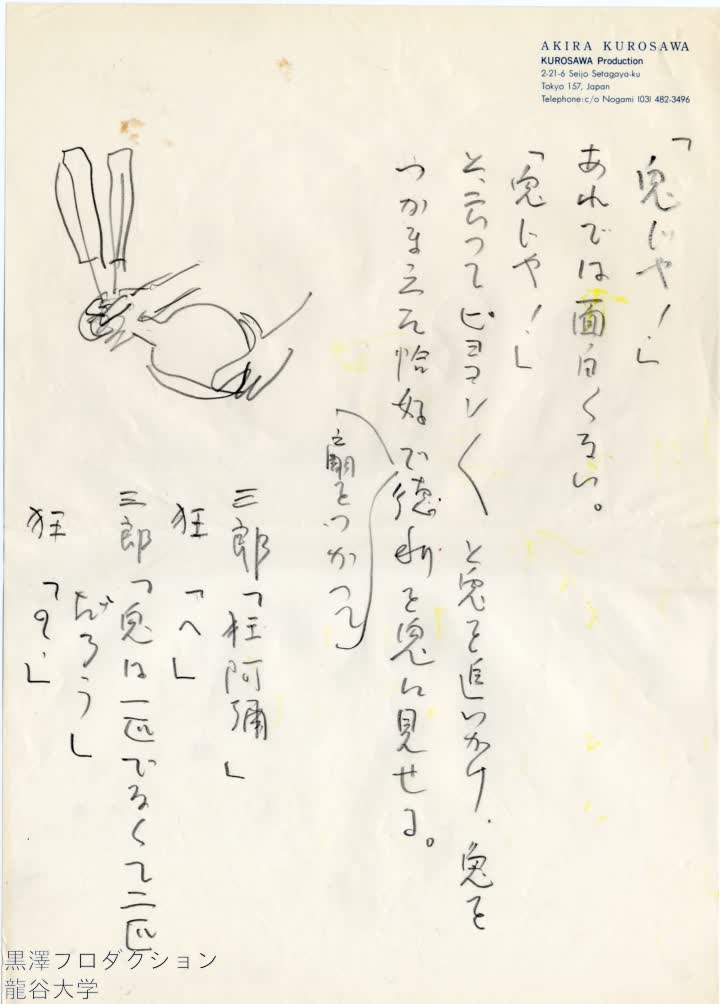 AKIRA KUROSAWA
KUROSAWA Production
2-21-6 Seijo Setagaya-ku
Tokyo 157, Japan
Telephone: c/o Nogami (03) 482-3496
「兎じゃ!」
あれでは面白くない。
「兎じゃ!」
と、云ってピョコン〱と兎を追いかけ、兎を
つかまえた恰好で徳利を兎に見せる。
扇をつかって)
三郎「狂阿彌」
狂「へ」
三郎「兎は一匹でなくて二匹
だろう」
狂「?」
黒澤プロダクション
龍谷大学